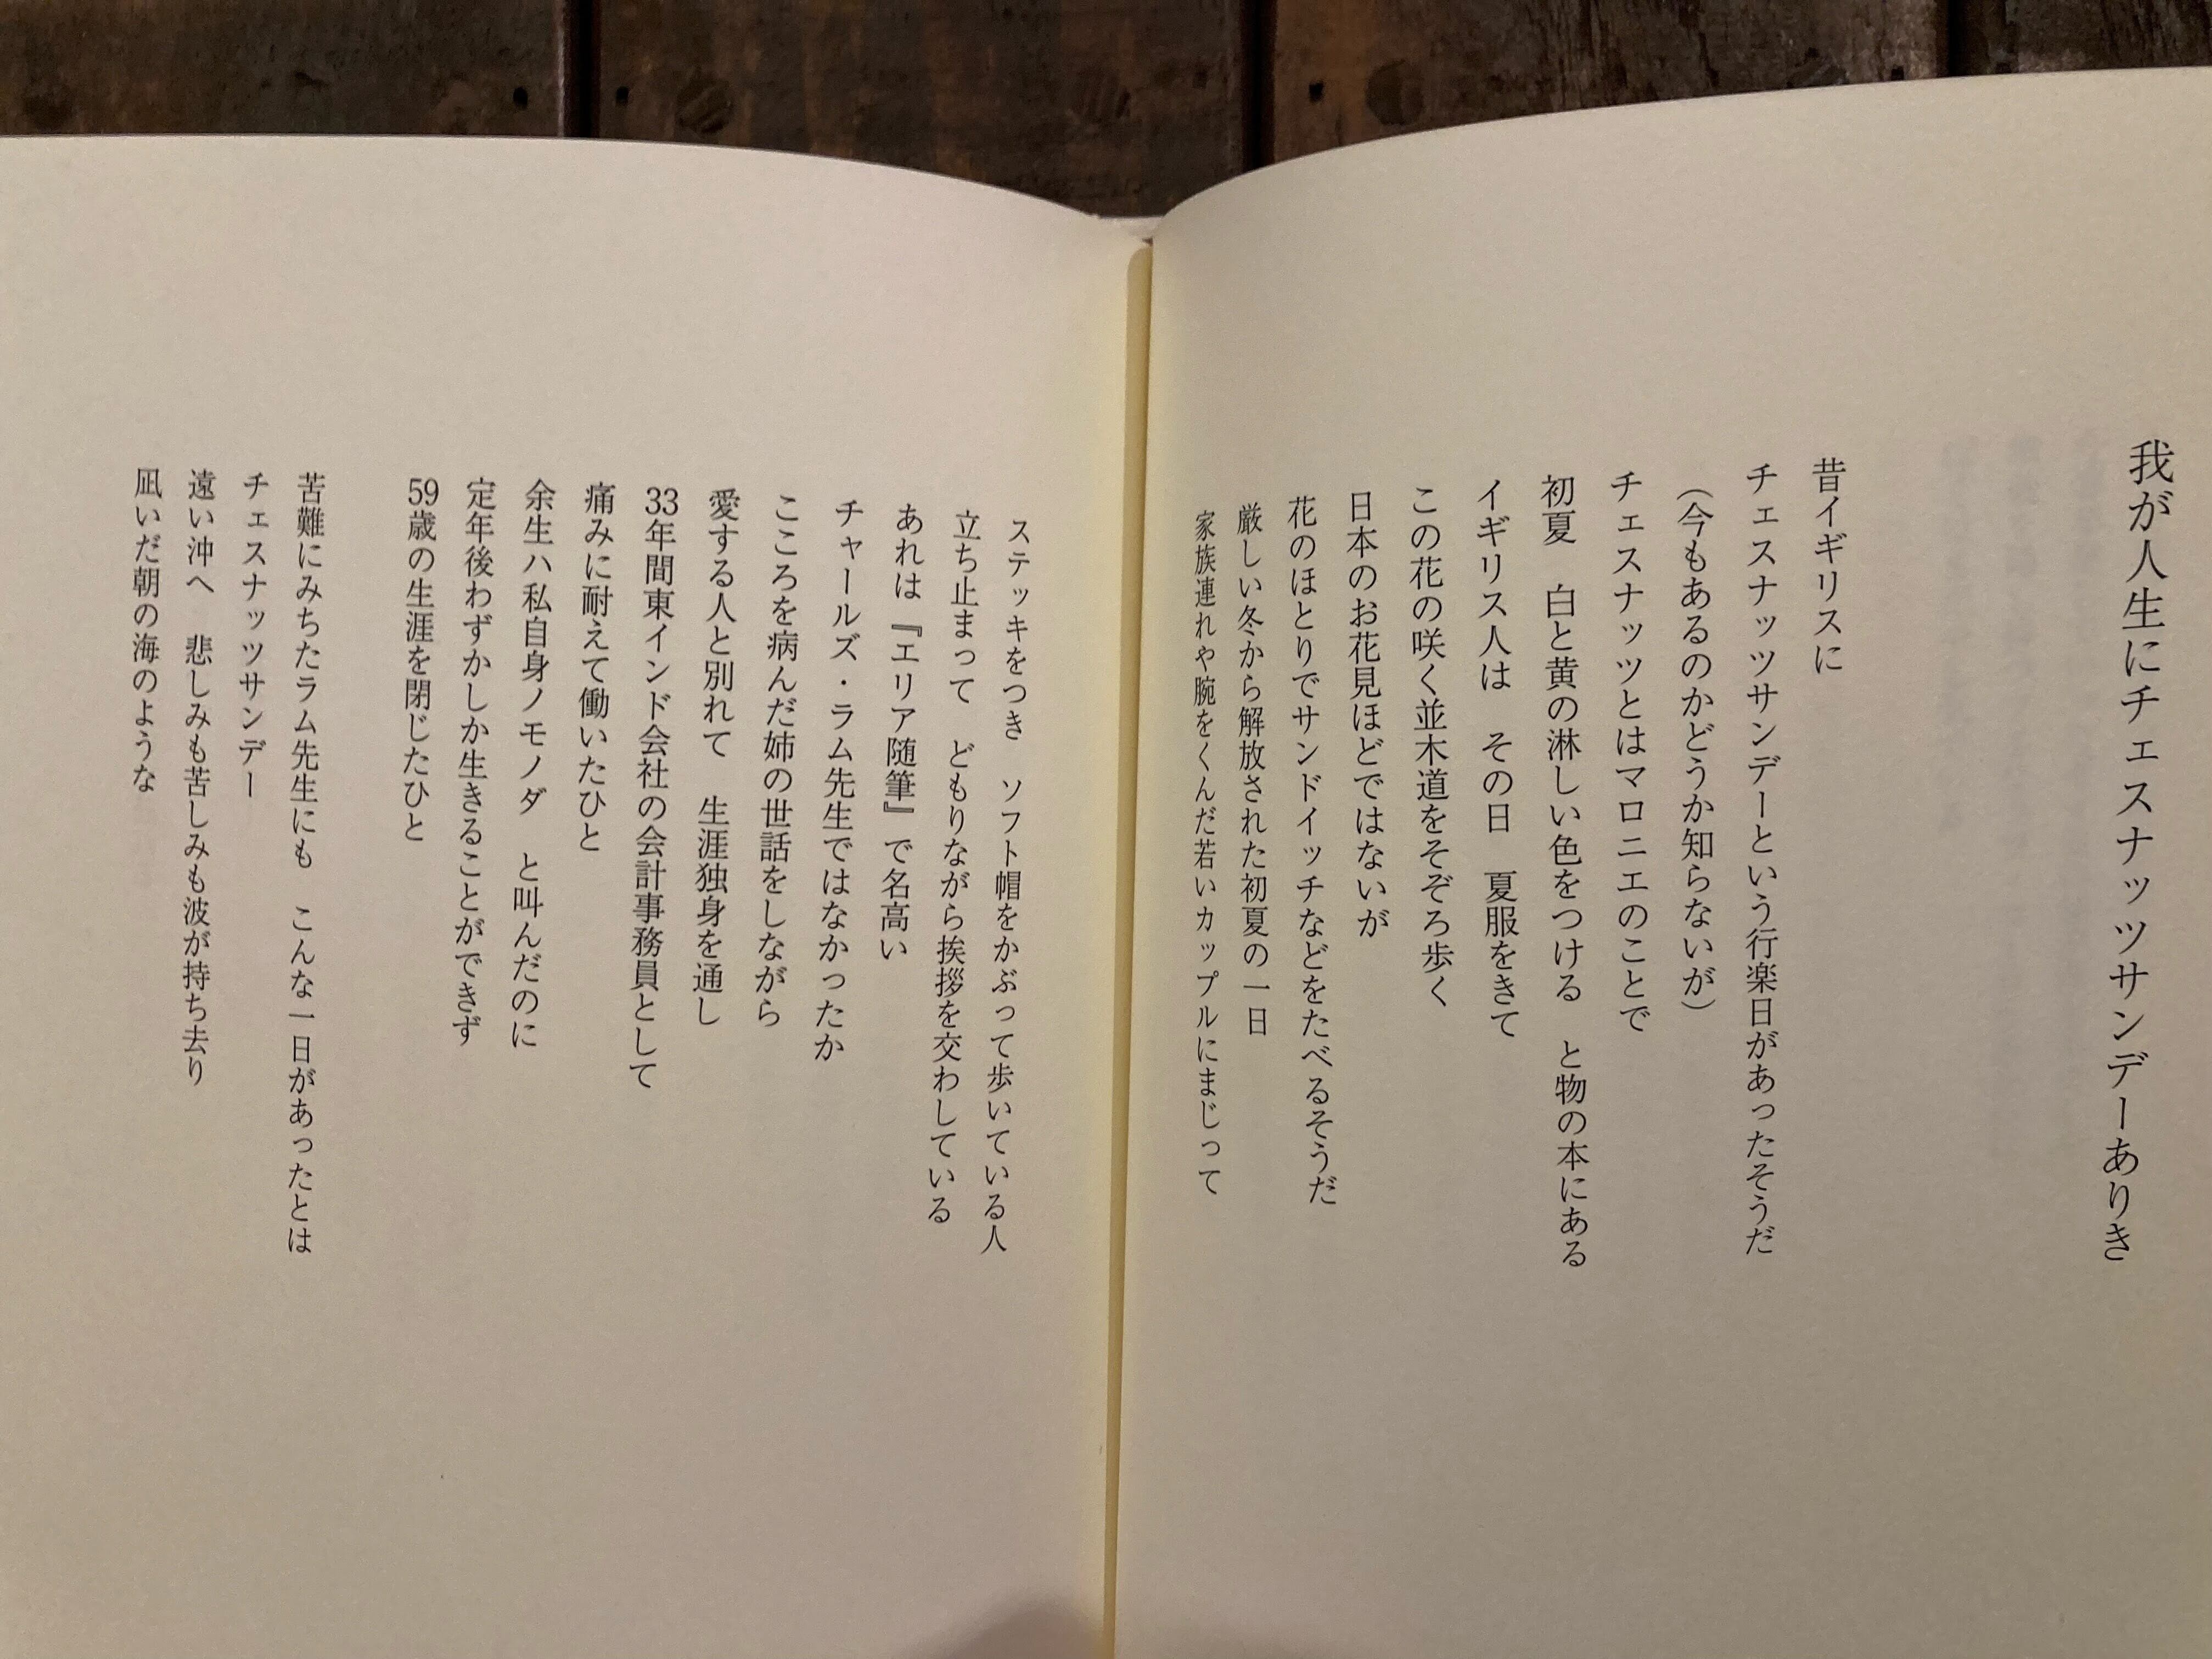 我が人生にチェスナッツサンデーありき
昔イギリスに
チェスナッツサンデーという行楽日があったそうだ
（今もあるのかどうか知らないが）
チェスナッツとはマロニエのことで
初夏　白と黄の淋しい色をつける　と物の本にある
イギリス人は　その日　夏服をきて
この花の咲く並木道をそぞろ歩く
日本のお花見ほどではないが
花のほとりでサンドイッチなどをたべるそうだ
厳しい冬から解放された初夏の一日
家族連れや腕をくんだ若いカップルにまじって
ステッキをつき　ソフト帽をかぶって歩いている人
立ち止まって　どもりながら挨拶を交わしている
あれは『エリア随筆』で名高い
チャールズ・ラム先生ではなかったか
こころを病んだ姉の世話をしながら
愛する人と別れて　生涯独身を通し
33年間東インド会社の会計事務員として
痛みに耐えて働いたひと
余生ハ私自身ノモノダ　と叫んだのに
定年後わずかしか生きることができず
59歳の生涯を閉じたひと
苦難にみちたラム先生にも　こんな一日があったとは
チェスナッツサンデー
遠い沖へ　悲しみも苦しみも波が持ち去り
凪いだ朝の海のような